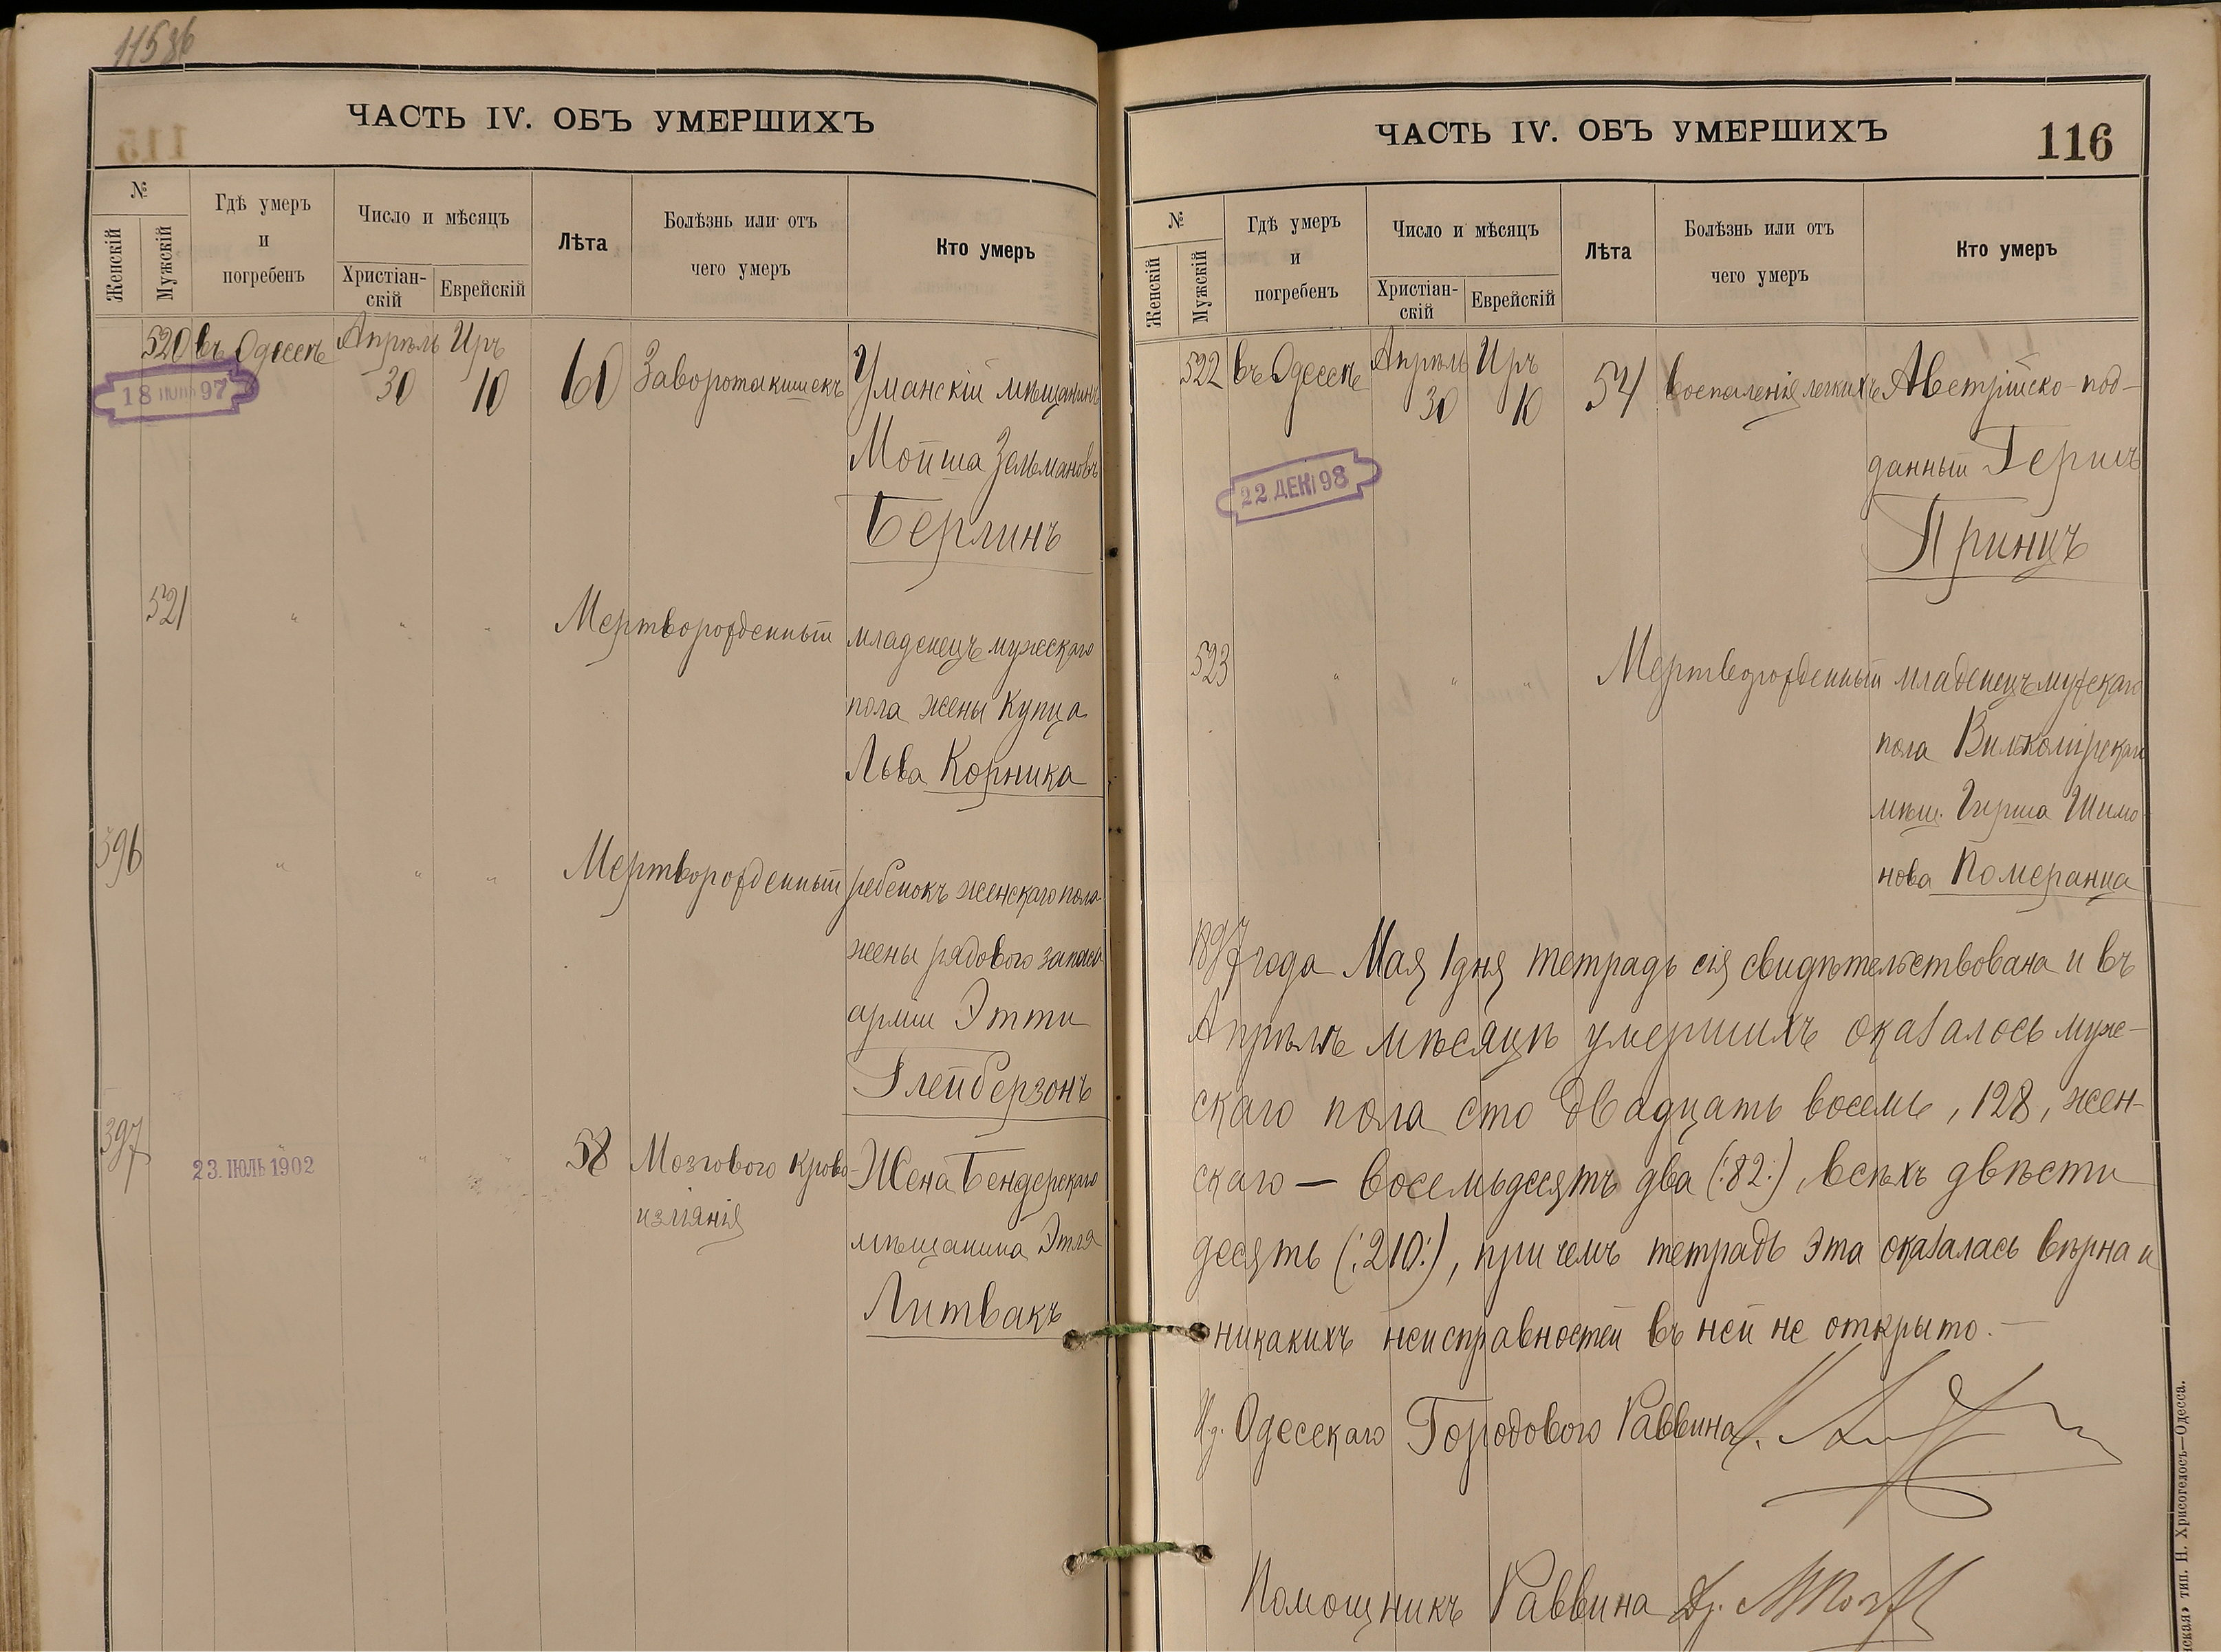 115об
ЧАСТЬ IV. ОБЪ УМЕРШИХЪ
№
Женскій
Мужскій
Гдѣ умеръ
и
погребенъ
Число и мѣсяцъ
Христіан-
скій
Еврейскій
Лѣта
Болѣзнь или отъ
чего умеръ
Кто умеръ
520 въ Одессѣ Апрѣль Иръ
30 10 60 Заворота кишекъ Уманскій мѣщанинъ
18 97
Мойша Зельмановъ
Берлинъ
521 " " " Мертворожденный младенецъ мужескаго
пола жены купца
Льва Корника
396 " " " Мертворожденный ребенокъ женскаго пола
жены рядового запаса
арміи Этти
Глейберзонъ
397 " " " 58 Мозгового крово- Жена Бендерскаго
23 ІЮЛЬ 1902
изліянія
мѣщанина Этля
Литвакъ
ЧАСТЬ IV. ОБЪ УМЕРШИХЪ
116
№
Женскій
Мужскій
Гдѣ умеръ
и
погребенъ
Число и мѣсяцъ
Христіан-
скій
Еврейскій
Лѣта
Болѣзнь или отъ
чего умеръ
Кто умеръ
522 въ Одессѣ Апрѣль Иръ
30 10 54 воспаленія легкихъ Австрійско-под-
данный Гершъ
22 ДЕК 98
Принцъ
523 " " " Мертворожденный младенецъ мужскаго
пола Вилькомірскаго
мѣщ. Гирша Шимо-
нова Померанца
1897 года Мая 1 дня тетрадь сія свидѣтельствована и въ
Апрѣлѣ мѣсяцѣ умершихъ оказалось муже-
скаго пола сто двадцать восемь, 128, жен-
скаго — восемьдесятъ два (:82:), всѣхъ двѣсти
десять (:210:), при чемъ тетрадь эта оказалась вѣрна и
никакихъ неисправностей въ ней не открыто.—
И.д. Одесскаго Городового Раввина
Помощникъ Раввина Др.
тип. Н. Хрисогелосъ—Одесса.